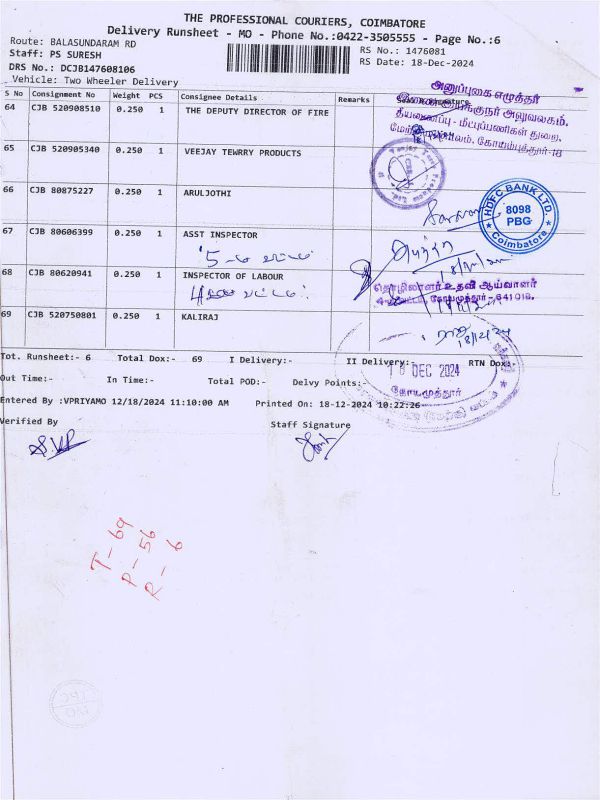 THE PROFESSIONAL COURIERS, COIMBATORE
Delivery Runsheet - MO - Phone No.:0422-3505555 - Page No.:6
Route: BALASUNDARAM RD
RS No.: 1476081
Staff: PS SURESH
RS Date: 18-Dec-2024
DRS No.: DCJB147608106
Vehicle: Two Wheeler Delivery
S No Consignment No Weight PCS Consignee Details Remarks
64 CJB 520908510 0.250 1 THE DEPUTY DIRECTOR OF FIRE
அனுப்புகை எழுத்தர்
தீயணைப்பு - மீட்புப்பணிகள் துறை,
65 CJB 520905340 0.250 1 VEEJAY TEWRRY PRODUCTS
66 CJB 80875227 0.250 1 ARULJOTHI
HDFC BANK LTD.
8098
PBG
Coimbatore
67 CJB 80606399 0.250 1 ASST INSPECTOR
68 CJB 80620941 0.250 1 INSPECTOR OF LABOUR
தொழிலாளர் உதவி ஆய்வாளர்
69 CJB 520750801 0.250 1 KALIRAJ
18/12/24
Tot. Runsheet:- 6 Total Dox:- 69 I Delivery:- II Delivery:- RTN Dox:-
18 DEC 2024
Out Time:- In Time:- Total POD:- Delvy Points:-
கோயமுத்தூர்
Entered By :VPRIYAMO 12/18/2024 11:10:00 AM Printed On: 18-12-2024 10:22:26
Verified By Staff Signature
T- 69
P- 56
R- 6